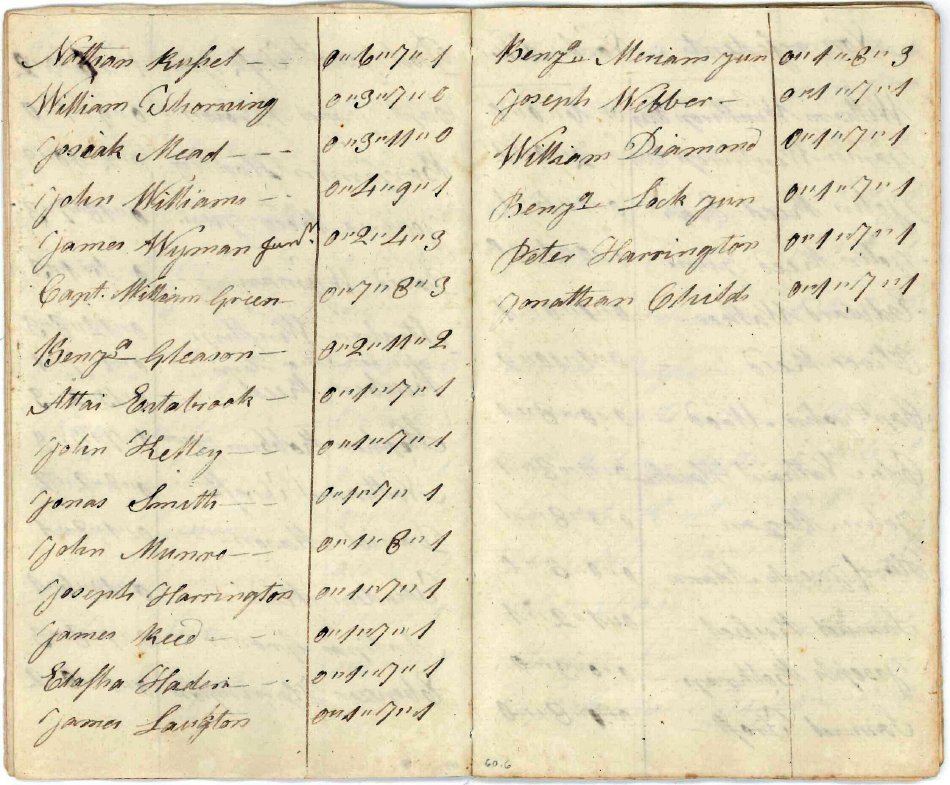 Nathan Russel - - 0" 6" 7" 1
William Thorning 0" 3" 7" 0
Josiah Mead - - - 0" 3" 11" 0
John Williams - 0" 4" 9" 1
James Wyman Junr. 0" 2" 4" 3
Capt. William Green 0" 7" 8" 3
Benja Gleason - 0" 2" 11" 2
Attai Estabrook - 0" 1" 7" 1
John Kelley - - 0" 1" 7" 1
Jonas Smith - - 0" 1" 7" 1
John Munro - - 0" 1" 8" 1
Joseph Harrington 0" 1" 7" 1
James Reed - - 0" 1" 7" 1
Haden - - 0" 1" 7" 1
James Laughton 0" 1" 7" 1
Benja Meriam Jun 0" 1" 8" 3
Joseph Webber - 0" 1" 7" 1
William Diamond 0" 1" 7" 1
Benja Lock Jun 0" 1" 7" 1
Peter Harrington 0" 1" 7" 1
Jonathan Childs 0" 1" 7" 1
60.6